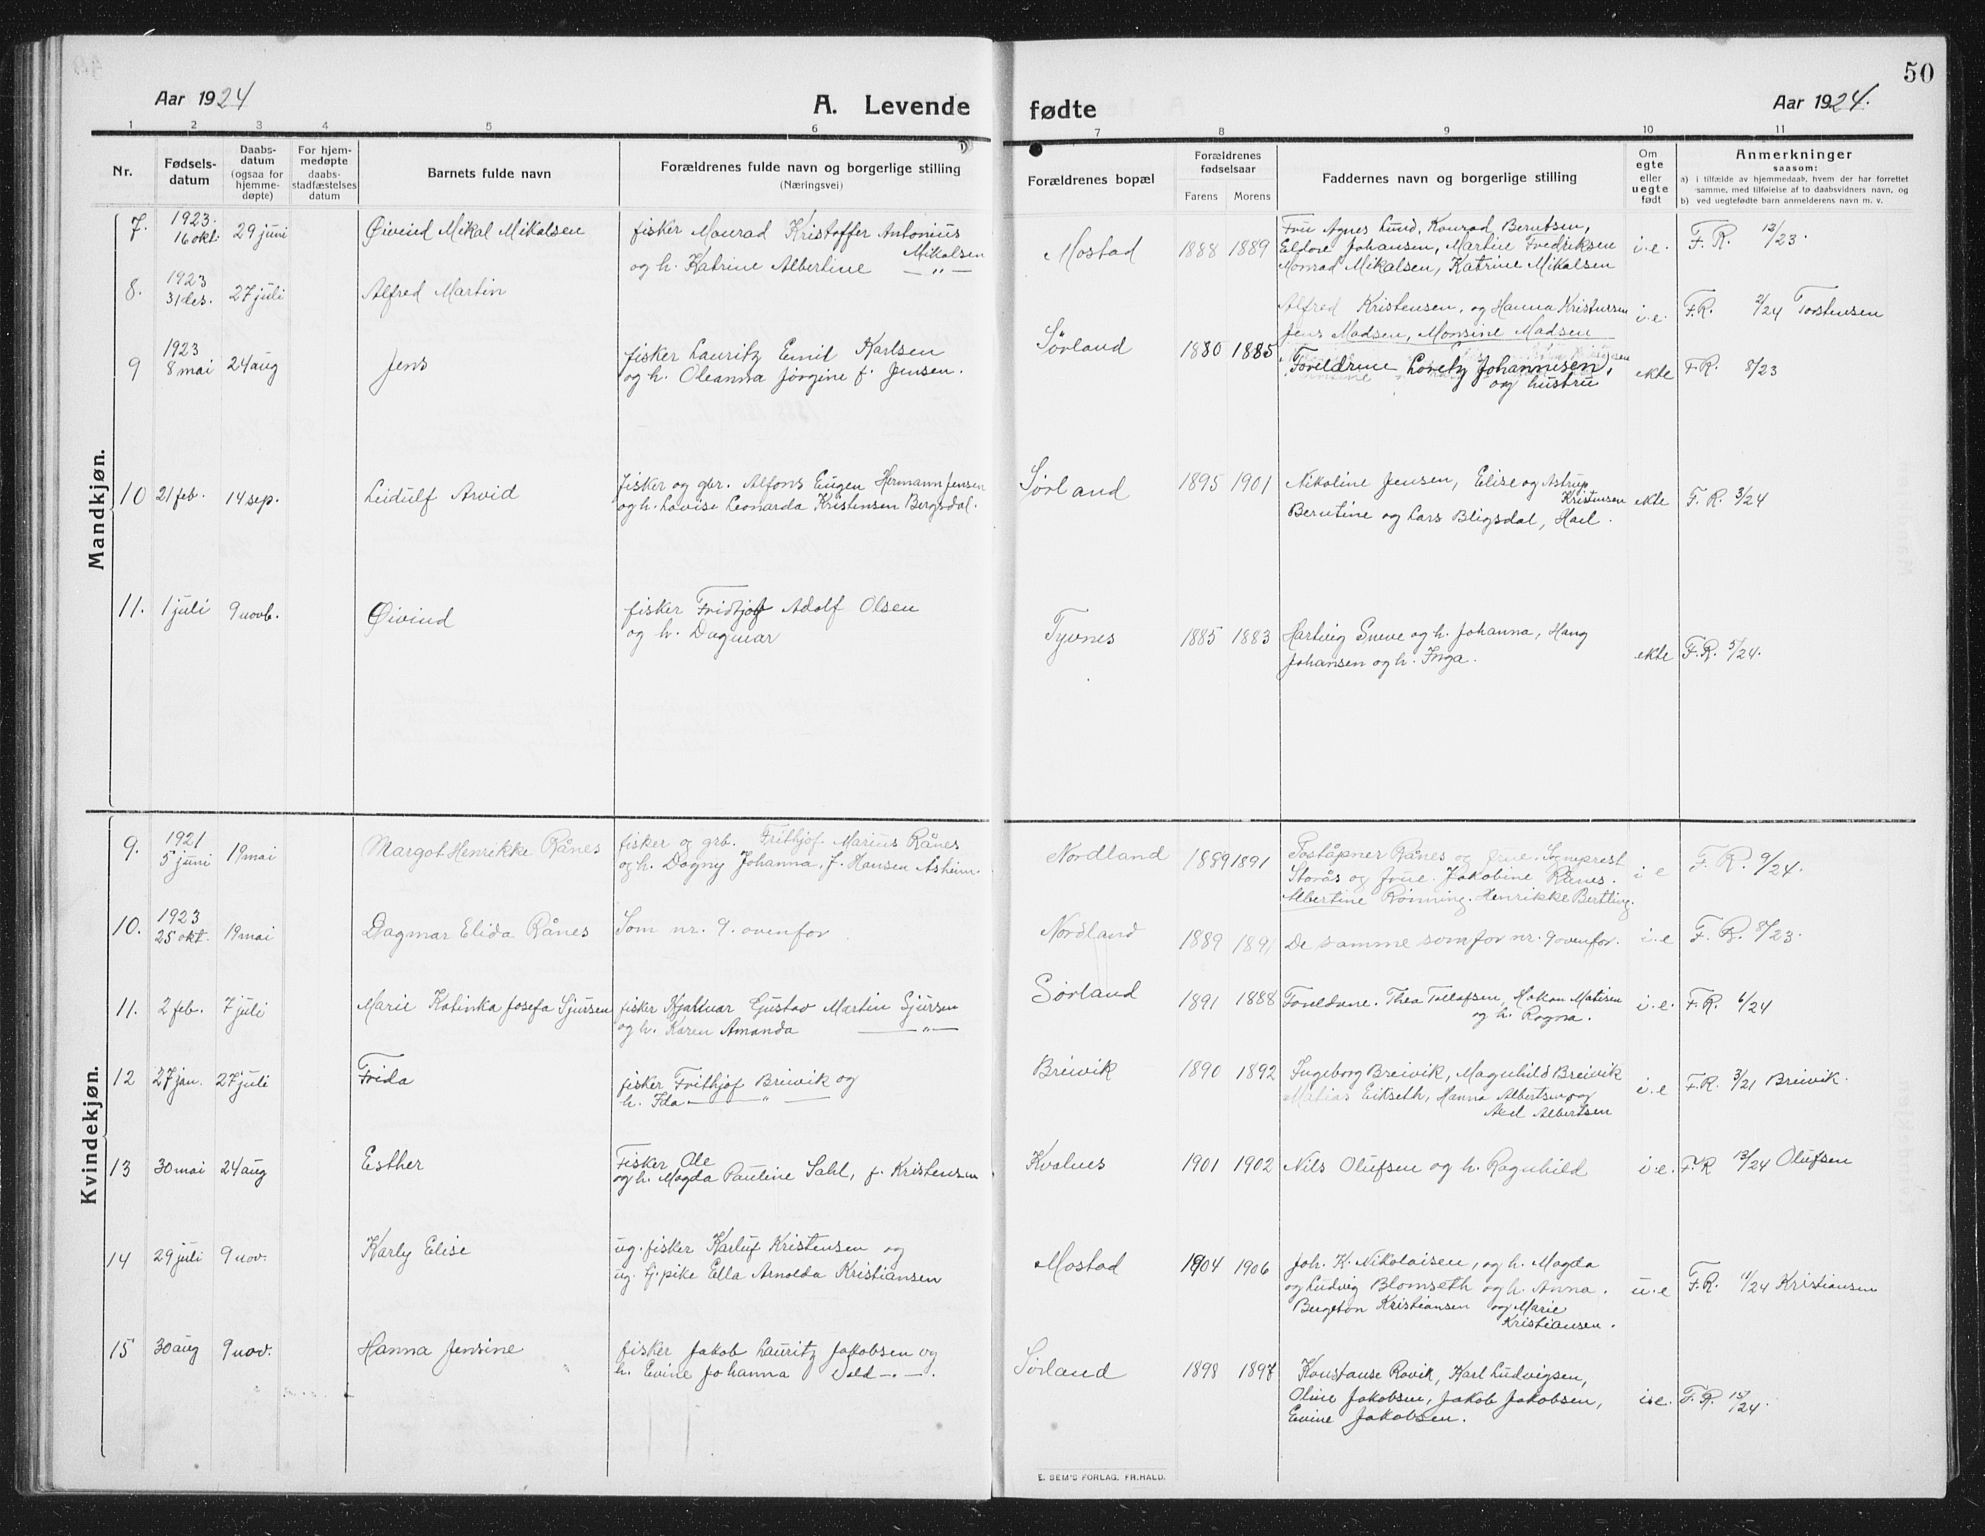 50
Aar 1924
A. Levende fødte
Aar 1924.
1 2 3 4 5 6 7 8 9 10 11
Nr.
Fødsels-
datum
Daabs-
datum
(ogsaa for
hjemme-
døpte)
For hjem-
medøpte
daabs-
stadfæstelses
datum
Barnets fulde navn
Forældrenes fulde navn og borgerlige stilling
(Næringsvei)
Forældrenes bopæl
Forældrenes
fødselsaar
Farens Morens
Faddernes navn og borgerlige stilling
Om
egte
eller
uegte
født
Anmerkninger
saasom:
a) i tilfælde av hjemmedaab, hvem der har forrettet
samme, med tilføielse af to daabsvidners navn, og
b) ved uegtefødte barn anmelderens navn m. v.
Mandkjøn.
7. 1923. 16 okt. 29 juni Øivind Mikal Mikalsen
fisker Monrad Kristoffer Antonius
Mikalsen
og h. Katrine Albertine — „ —
Mostad 1888 1889
Fru Agnes Lund, Konrad Berntsen,
Eldore Johansen, Martin Fredriksen
Monrad Mikalsen, Katrine Mikalsen
i.e. F. R. 12/23.
8. 1923 31 des. 27 juli Alfred Martin
Alfred Kristensen, og Hanna Kristensen
Jens Madsen, Monsine Madsen
i.e. F.R. 2/24 Torstensen
9 1923 8 mai 24 aug Jens
fisker Lauritz Emil Karlsen
og h. Oleanna Jørgine f. Jensen.
Sørland 1880 1885
Foreldrene Lovetz Johannesen,
og hustru
ekte F.R. 8/23
10 21 feb. 14 sep. Leidulf Arvid
fisker og gbr. Alfons Eugen Hermann Jensen
og h. Lovise Leonarda Kristensen Bergsdal.
Sørland 1895 1901
Nikoline Jensen, Elise og Astrup
Kristensen
Berntine og Lars Bligsdal, Hail.
ekte F. R. 3/24
11. 1 juli 9 novb. Øivind
fisker Fridtjof Adolf Olsen
og h. Dagmar
Tyvnes 1885 1883
Hartvig Sneve og h. Johanna, Hang
Johansen og h. Inga.
ekte F.R. 5/24.
Kvindekjøn.
9. 1921 5 juni 19 mai Margot Henrikke Rånes
fisker og grb. Frithjof Marius Rånes
og h. Dagny Johanna, f. Hansen Asheim.
Nordland 1889 1891
Poståpner Rånes og frue. Sogneprest
Storås og frue. Jakobine Rånes.
Albertine Rønning. Henrikke Bertling.
i e F. R. 9/24.
10. 1923 25 okt. 19 mai Dagmar Elida Rånes
Som nr. 9. ovenfor
Nordland 1889 1891
De samme som for nr. 9 ovenfor.
i.e F. R. 8/23.
11. 2 feb. 7 juli Marie Katinka Josefa Sjursen
fisker Hjalmar Gustav Martin Sjursen
og h. Karen Amanda — „ —
Sørland 1891 1888
Foreldrene. Thea Tollafsen, Hakon Matisen
og h. Ragna.
i.e. F.R. 6/24
12 27 jan. 27 juli Frida
fisker Frithjof Breivik og
h. Ida — „ —
Breivik 1890 1892
Ingeborg Breivik, Magnhild Breivik
Matias Eikseth, Hanna Albertsen og
Axel Albertsen
i.e F.R. 3/21 Breivik.
13 30 mai 24 aug Esther
Fisker Ole
og h. Magda Pauline Sahl, f. Kristensen
Kvalnes 1901 1902 Nils Olufsen og h. Ragnhild
i.e. F.R 13/24 Olufsen
14 29 juli 9 nov. Karly Elise
ug. fisker Karluf Kristensen og
ug. tj. pike Ella Arnolda Kristiansen
Mostad 1904 1906
Joh. K. Nikolaisen, og h. Magda
og Ludvig Blomseth og h. Anna.
Bergeton Kristiansen og Marie
Kristiansen.
u.e F.R. 4/24 Kristiansen
15 30 aug 9 nov. Hanna Jensine
fisker Jakob Lauritz Jakobsen og
h. Evine Johanna Vold —„—.
Sørland 1898 1897
Konstanse Rovik, Karl Ludvigsen,
Oline Jakobsen, Jakob Jakobsen,
Evine Jakobsen.
i.e. F. R. 15/24.
E. SEM'S FORLAG. FR.HALD.